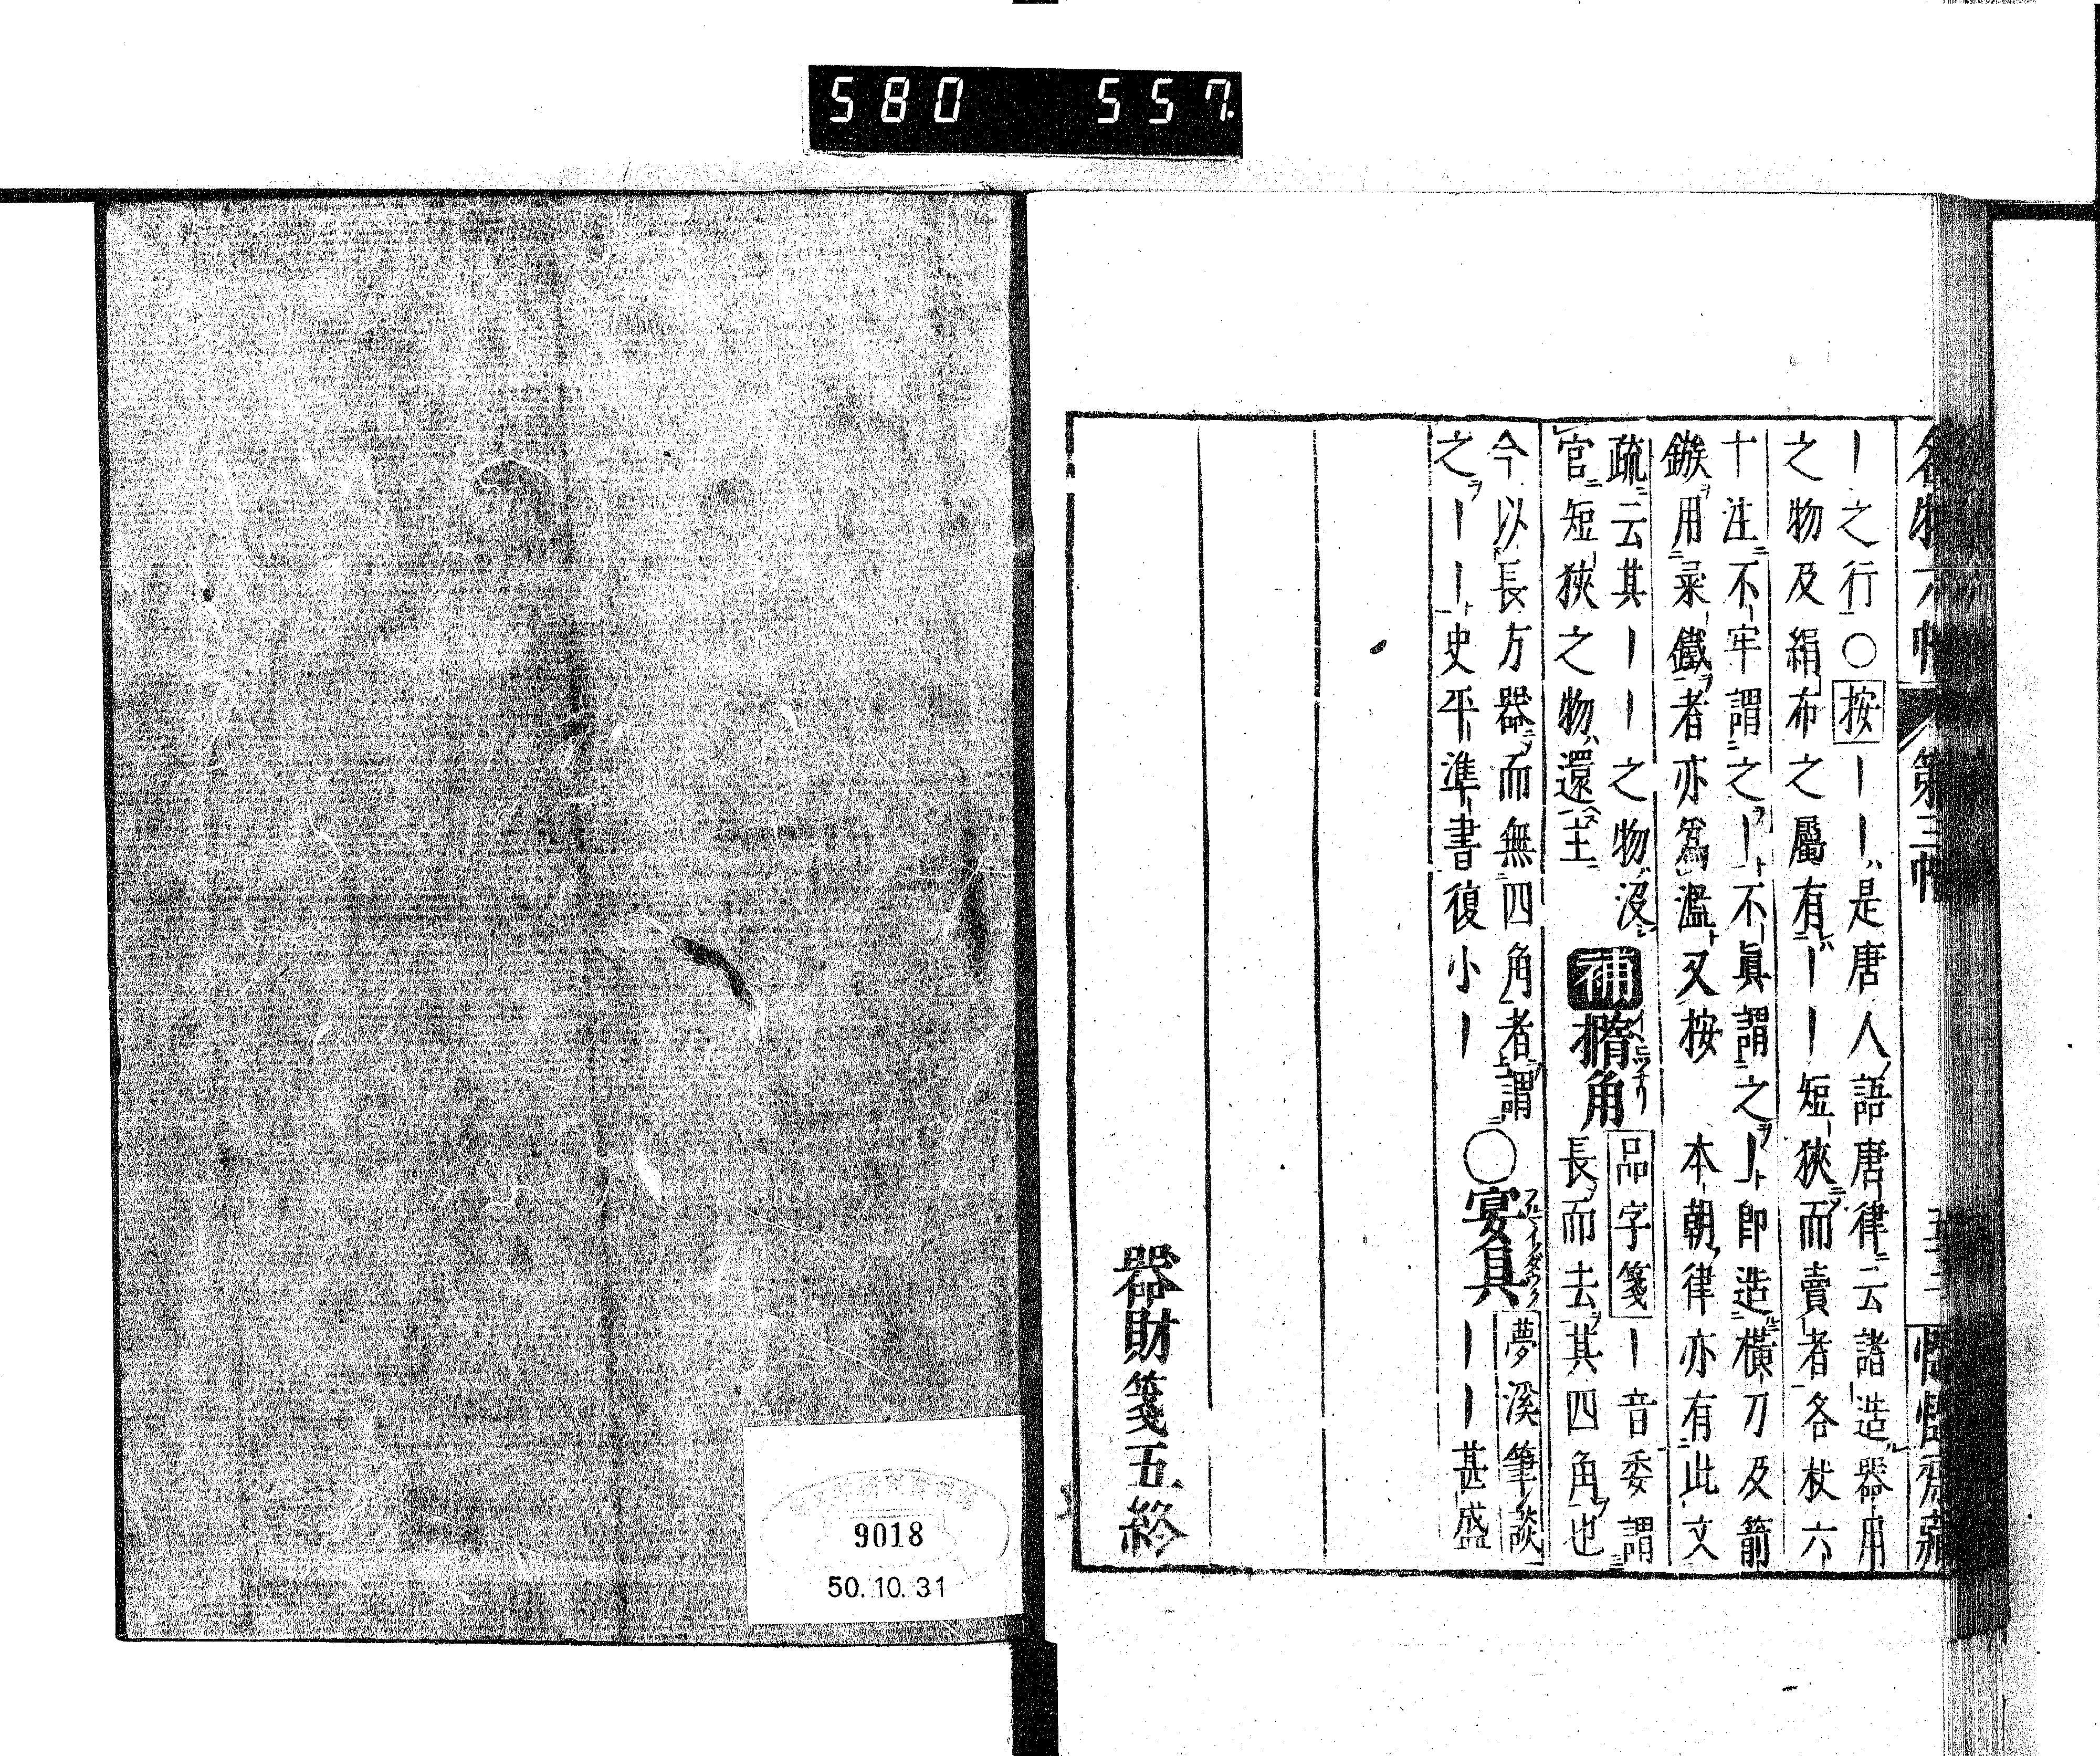 580 557
名物六帖 第三帖
丨之行○按丨丨是唐人語唐律云諸造器用
之物及絹布之屬有丨丨短狹而賣者各杖六
十注不牢謂之丨不眞謂之丨卽造橫刀及箭
鏃用柔鐵者亦爲濫又按 本朝律亦有此文
疏云其丨丨之物沒
官短狹之物還主
補
橢角
品字箋丨音委謂
長而去其四角也
今以長方器而無四角者謂
之丨丨史平準書復小丨
○宴具
夢溪筆談
丨丨甚盛
器財箋五終
9018
50.10.31